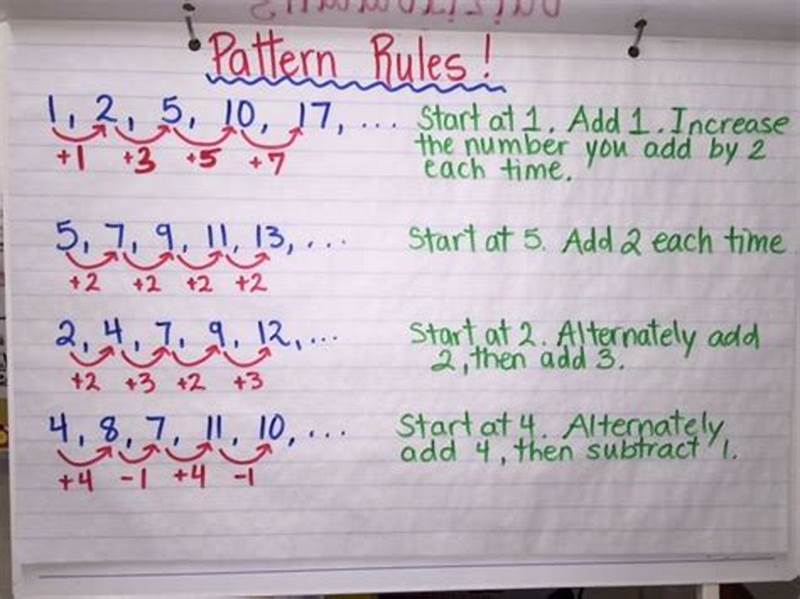 Pattern Rules!
1, 2, 5, 10, 17, ... Start at 1. Add 1. Increase
the number you add by 2
+1 +3 +5 +7
each time.
5, 7, 9, 11, 13, ... Start at 5. Add 2 each time
+2 +2 +2 +2
2, 4, 7, 9, 12, ... Start at 2. Alternately add
2, then add 3.
+2 +3 +2 +3
4, 8, 7, 11, 10, ... Start at 4. Alternately
add 4, then subtract 1.
+4 -1 +4 -1